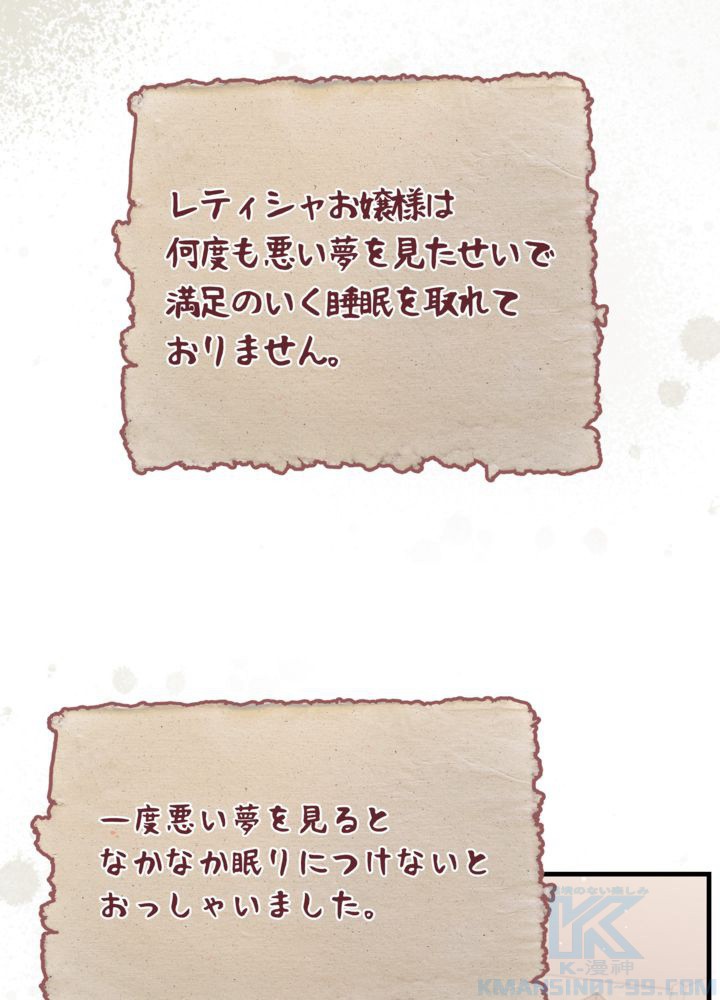 レティシャお嬢様は
何度も悪い夢を見たせいで
満足のいく睡眠を取れて
おりません。
一度悪い夢を見ると
なかなか眠りにつけないと
おっしゃいました。
K-漫神
KMANSIN01-99.COM